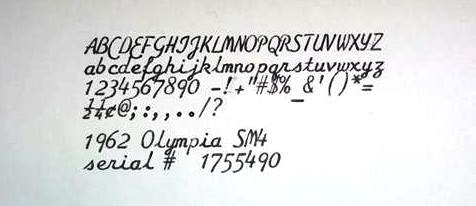 ABCDEFGHIJKLMNOPQRSTUVWXYZ
abcdefghijklmnopqrstuvwxyz
1234567890 -!+"#$%_&'()*=
½¼¢@;:,,../?
1962 Olympia SM4
serial # 1755490